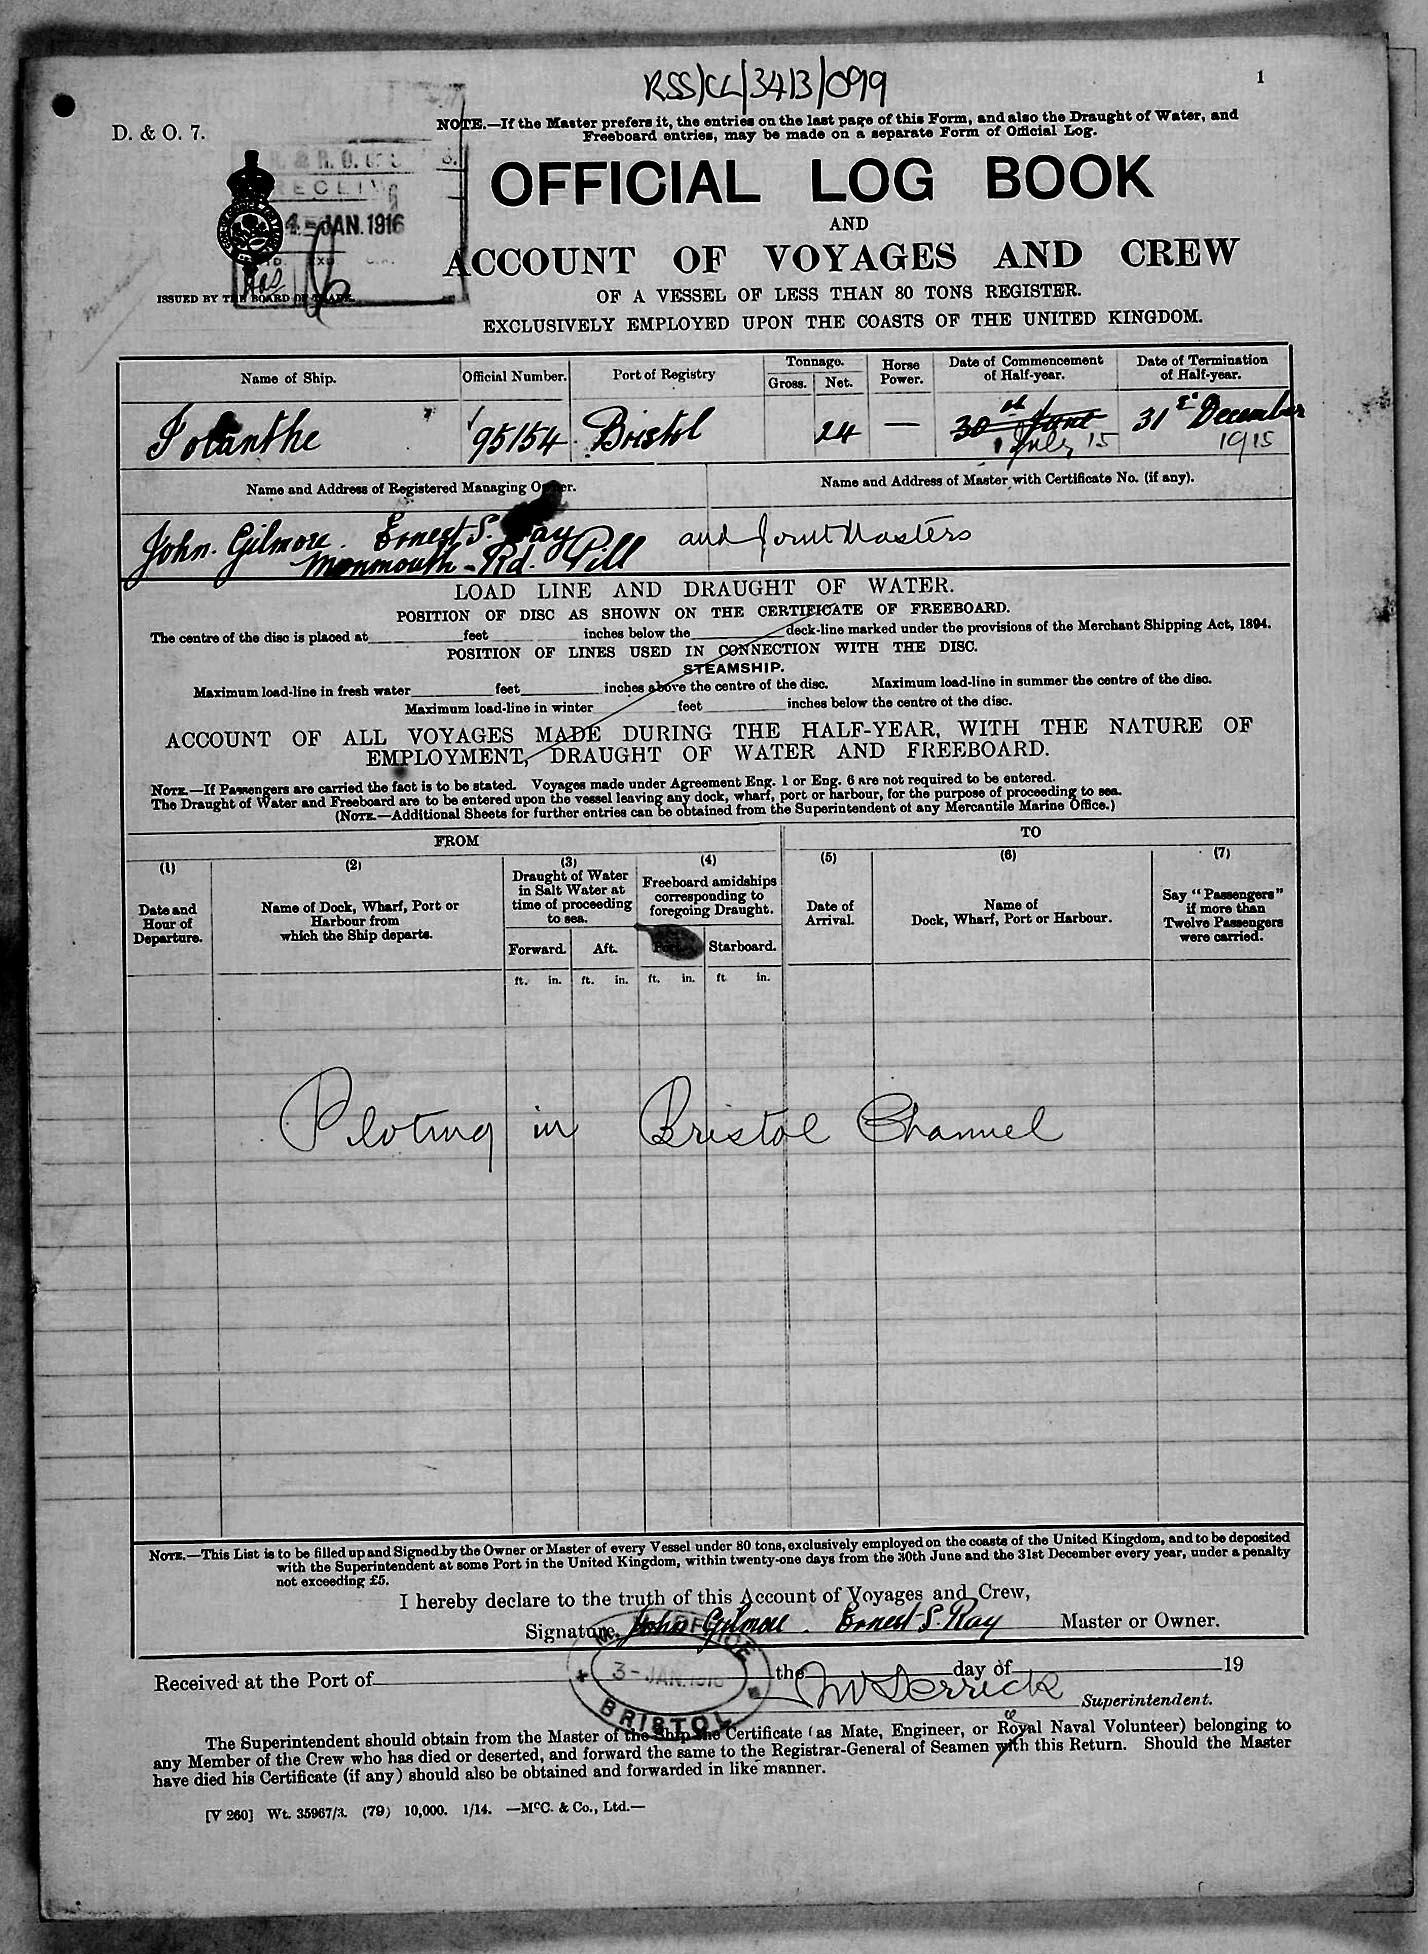 RSS/CL/3413/099
1
D. & O. 7.
NOTE.—If the Master prefers it, the entries on the last page of this Form, and also the Draught of Water, and
Freeboard entries, may be made on a separate Form of Official Log.
4-JAN.1916
ISSUED BY THE BOARD OF TRADE.
OFFICIAL LOG BOOK
AND
ACCOUNT OF VOYAGES AND CREW
OF A VESSEL OF LESS THAN 80 TONS REGISTER.
EXCLUSIVELY EMPLOYED UPON THE COASTS OF THE UNITED KINGDOM.
Name of Ship. Official Number. Port of Registry Tonnage. Gross. Net. Horse Power. Date of Commencement of Half-year. Date of Termination of Half-year.
Iolanthe 95154 Bristol 24 — 30th June 31st December
1 July 15 1915
Name and Address of Registered Managing Owner. Name and Address of Master with Certificate No. (if any).
John Gilmore. Ernest S. Ray and Joint Masters
Monmouth-Rd. Pill
LOAD LINE AND DRAUGHT OF WATER.
POSITION OF DISC AS SHOWN ON THE CERTIFICATE OF FREEBOARD.
The centre of the disc is placed at feet inches below the deck-line marked under the provisions of the Merchant Shipping Act, 1894.
POSITION OF LINES USED IN CONNECTION WITH THE DISC.
STEAMSHIP.
Maximum load-line in fresh water feet inches above the centre of the disc. Maximum load-line in summer the centre of the disc.
Maximum load-line in winter feet inches below the centre of the disc.
ACCOUNT OF ALL VOYAGES MADE DURING THE HALF-YEAR, WITH THE NATURE OF
EMPLOYMENT, DRAUGHT OF WATER AND FREEBOARD.
NOTE.—If Passengers are carried the fact is to be stated. Voyages made under Agreement Eng. 1 or Eng. 6 are not required to be entered.
The Draught of Water and Freeboard are to be entered upon the vessel leaving any dock, wharf, port or harbour, for the purpose of proceeding to sea.
(NOTE.—Additional Sheets for further entries can be obtained from the Superintendent of any Mercantile Marine Office.)
FROM TO
(1) (2) (3) (4) (5) (6) (7)
Date and Hour of Departure.
Name of Dock, Wharf, Port or Harbour from which the Ship departs.
Draught of Water in Salt Water at time of proceeding to sea.
Freeboard amidships corresponding to foregoing Draught.
Date of Arrival.
Name of Dock, Wharf, Port or Harbour.
Say "Passengers" if more than Twelve Passengers were carried.
Forward. Aft. Port. Starboard.
ft. in. ft. in. ft. in. ft in.
Piloting in Bristol Channel
NOTE.—This List is to be filled up and Signed by the Owner or Master of every Vessel under 80 tons, exclusively employed on the coasts of the United Kingdom, and to be deposited
with the Superintendent at some Port in the United Kingdom, within twenty-one days from the 30th June and the 31st December every year, under a penalty
not exceeding £5.
I hereby declare to the truth of this Account of Voyages and Crew,
Signature John Gilmore. Ernest S. Ray Master or Owner.
Received at the Port of the day of 19
3-JAN.1916
BRISTOL
Derrick Superintendent.
The Superintendent should obtain from the Master of the Ship the Certificate (as Mate, Engineer, or Royal Naval Volunteer) belonging to
any Member of the Crew who has died or deserted, and forward the same to the Registrar-General of Seamen with this Return. Should the Master
have died his Certificate (if any) should also be obtained and forwarded in like manner.
[V 260] Wt. 35967/3. (79) 10,000. 1/14. —McC. & Co., Ltd.—